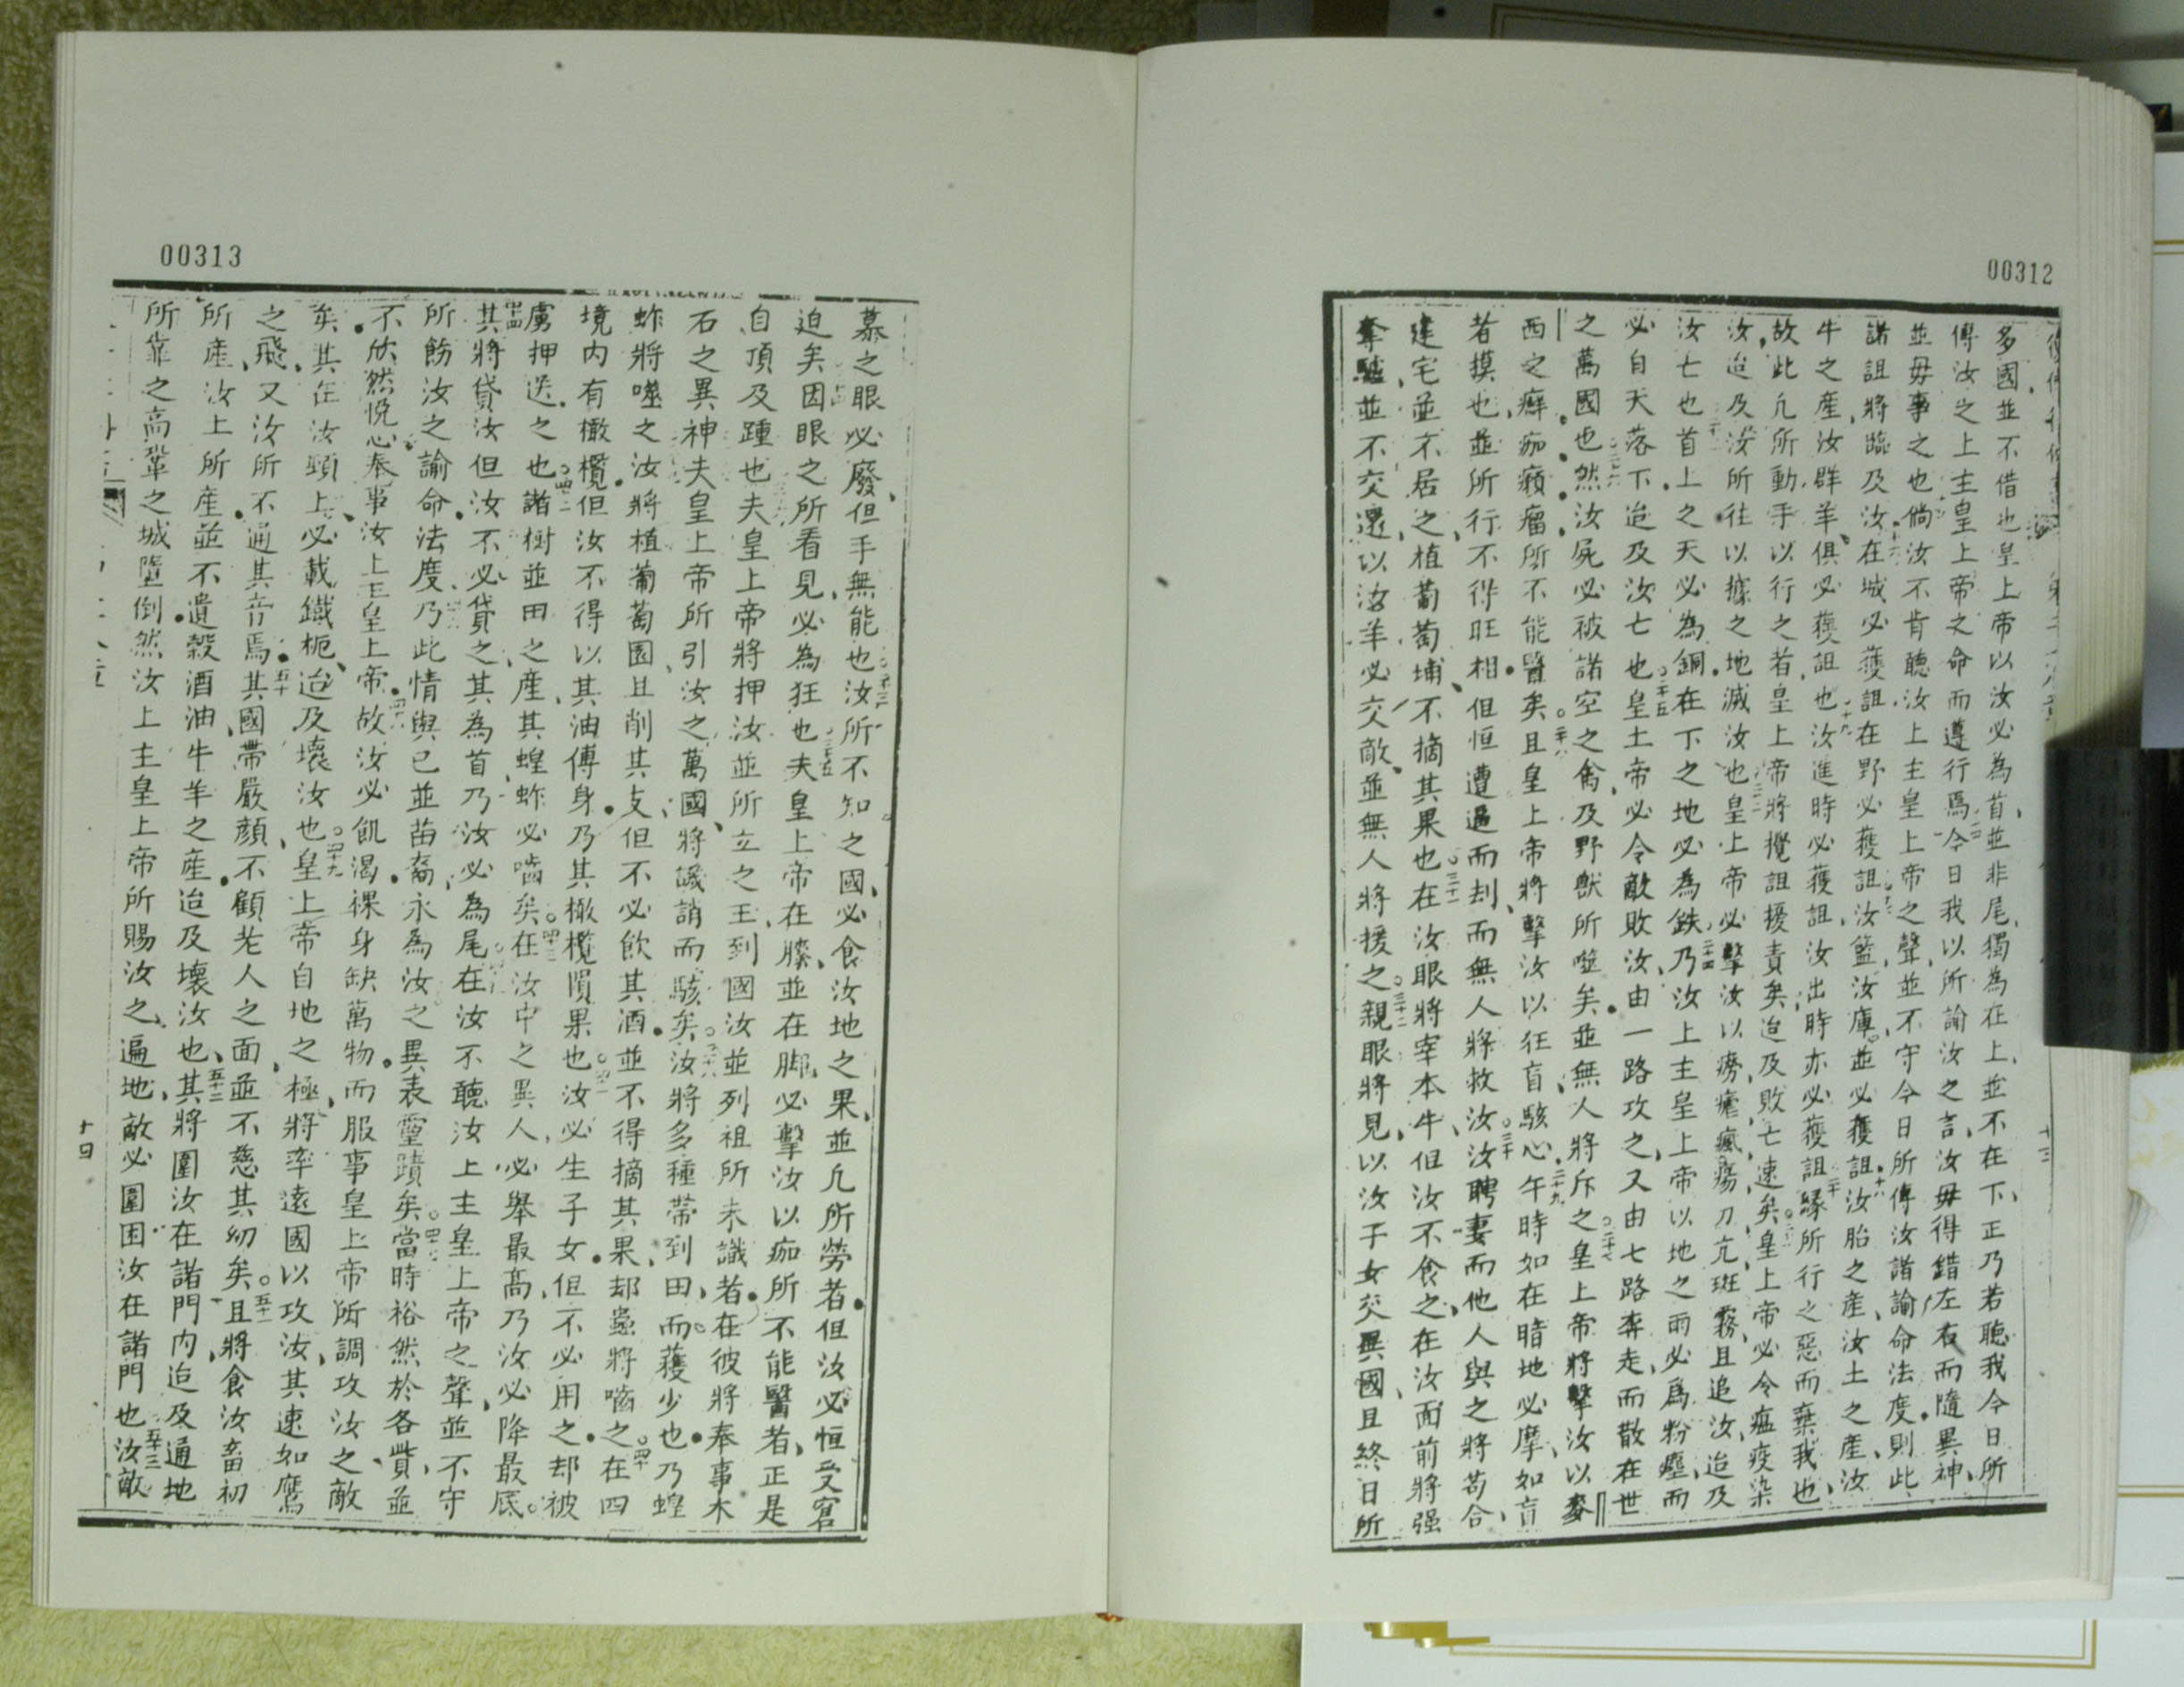 00312
多國並不借也皇上帝以汝必為首並非尾獨為在上並不在下正乃若聽我今日所
傳汝之上主皇上帝之命而遵行焉今日我以所諭汝之言汝毋得錯左右而隨異神
並毋事之也倘汝不肯聽汝上主皇上帝之聲並不守今日所傳汝諸諭命法度則此
諸詛將臨及汝在城必獲詛在野必獲詛汝籃汝庫並必獲詛汝胎之產汝土之產汝
牛之產汝群羊俱必獲詛也汝進時必獲詛汝出時亦必獲詛緣所行之惡而棄我也
故此凡所動手以行之者皇上帝將攪詛擾責矣迨及敗亡速矣皇上帝必令瘟疫染
汝迨及汝所往以據之地滅汝也皇上帝必擊汝以癆瘧瘋瘍刀亢斑霧且追汝迨及
汝亡也首上之天必為銅在下之地必為鉄乃汝上主皇上帝以地之雨必為粉塵而
必自天落下迨及汝亡也皇上帝必令敵敗汝由一路攻之又由七路奔走而散在世
之萬國也然汝屍必被諸空之禽及野獸所噬矣並無人將斥之皇上帝將擊汝以麥
西之癬痂癩瘤所不能醫矣且皇上帝將擊汝以狂盲駭心午時如在暗地必摩如盲
者摸也並所行不得旺相但恒遭逼而刦而無人將救汝汝聘妻而他人與之將苟合
建宅並不居之植葡萄埔不摘其果也在汝眼將宰本牛但汝不食之在汝面前將强
奪驢並不交還以汝羊必交敵並無人將援之親眼將見以汝子女交異國且終日所
00313
慕之眼必廢但手無能也汝所不知之國必食汝地之果並凡所勞者但汝必恒受窘
迫矣因眼之所看見必為狂也夫皇上帝在膝並在脚必擊汝以痂所不能醫者正是
自頂及踵也夫皇上帝將押汝並所立之王到國汝並列祖所未識者在彼將奉事木
石之異神夫皇上帝所引汝之萬國將譏誚而駭矣汝將多種帶到田而獲少也乃蝗
蚱將噬之汝將植葡萄園且削其支但不必飲其酒並不得摘其果却蟲將嚙之在四
境内有橄欖但汝不得以其油傅身乃其橄欖隕果也汝必生子女但不必用之却被
虜押送之也諸樹並田之產其蝗蚱必嚙矣在汝中之異人必舉最高乃汝必降最底
其將貸汝但汝不必貸之其為首乃汝必為尾在汝不聽汝上主皇上帝之聲並不守
所飭汝之諭命法度乃此情與已並苗裔永為汝之異表靈蹟矣當時裕然於各貲並
不欣然悅心奉事汝上主皇上帝故汝必飢渴裸身缺萬物而服事皇上帝所調攻汝之敵
矣其在汝頸上必載鐵枙迨及壞汝也皇上帝自地之極將率遠國以攻汝其速如鷹
之飛又汝所不通其音焉其國帶嚴顏不顧老人之面並不慈其幼矣且將食汝畜初
所產汝土所產並不遺穀酒油牛羊之產迨及壞汝也其將圍汝在諸門内迨及通地
所靠之高鞏之城墮倒然汝上主皇上帝所賜汝之遍地敵必圍困汝在諸門也汝敵
十四